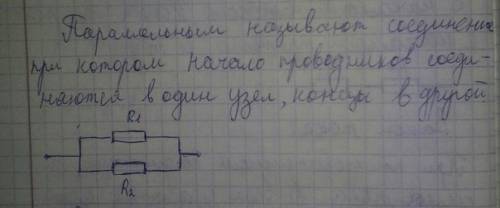 Параллельным называют соединение
при котором начало проводников соеди-
наются в один узел, концы в другой.
R1
R2